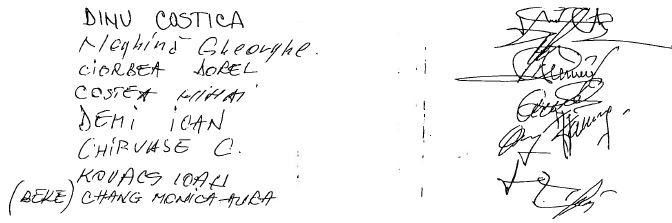 DINU COSTICA
Neghină Gheorghe.
CIORBEA DOREL
COSTEA MIHAI
DEMI IOAN
CHIRVASE C.
KOVACS IOAN
(BEKE) CHANG MONICA-AURA